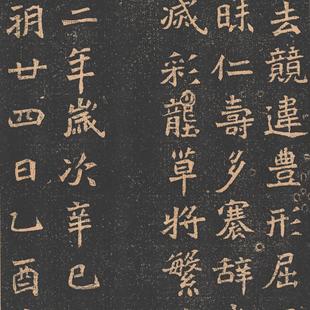 去競違豊形屈
昧仁壽多褰辞
滅彩龍草将繁
二年歲次辛巳
朔廿四日乙酉